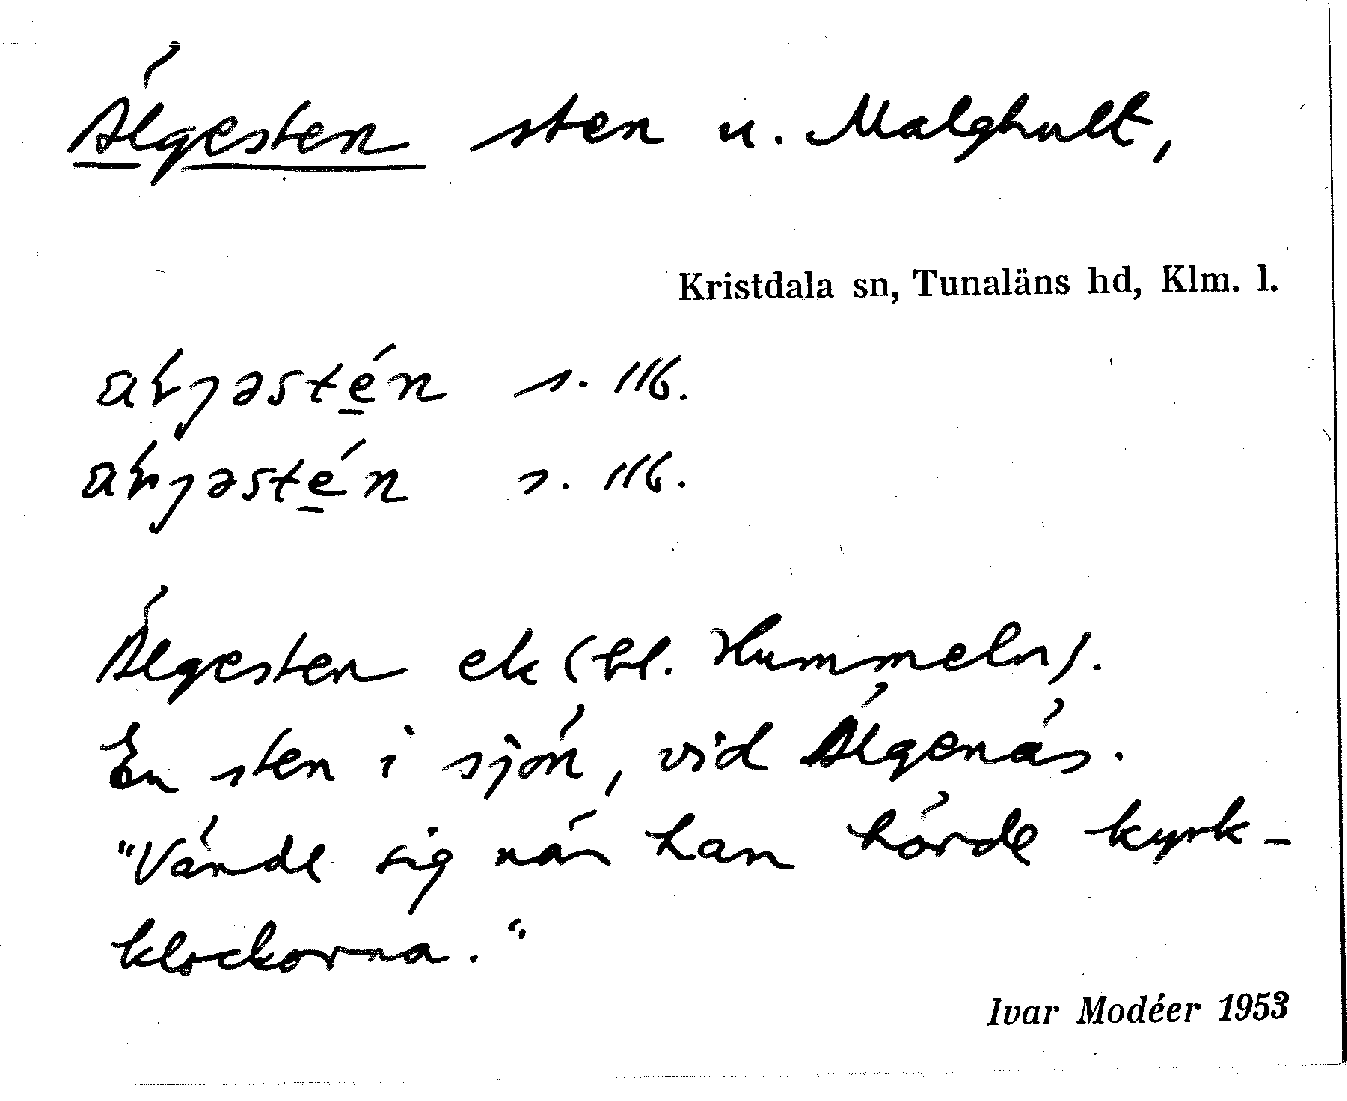 Älgesten sten u. Malghult,
Kristdala sn, Tunaläns hd, Klm. l.
s. 116.
s. 116.
Älgesten ek (bl. Hummeln).
En sten i sjön, vid Älgenäs.
"Vände sig när han hörde kyrk-
klockorna."
Ivar Modéer 1953